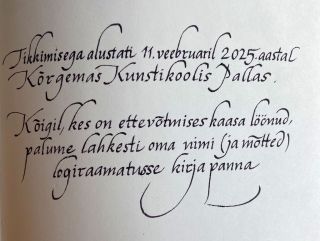 Tikkimisega alustati 11. veebruaril 2025. aastal
Kõrgemas Kunstikoolis Pallas.
Kõigil, kes on ettevõtmises kaasa löönud,
palume lahkesti oma nimi (ja mõtted)
logiraamatusse kirja panna